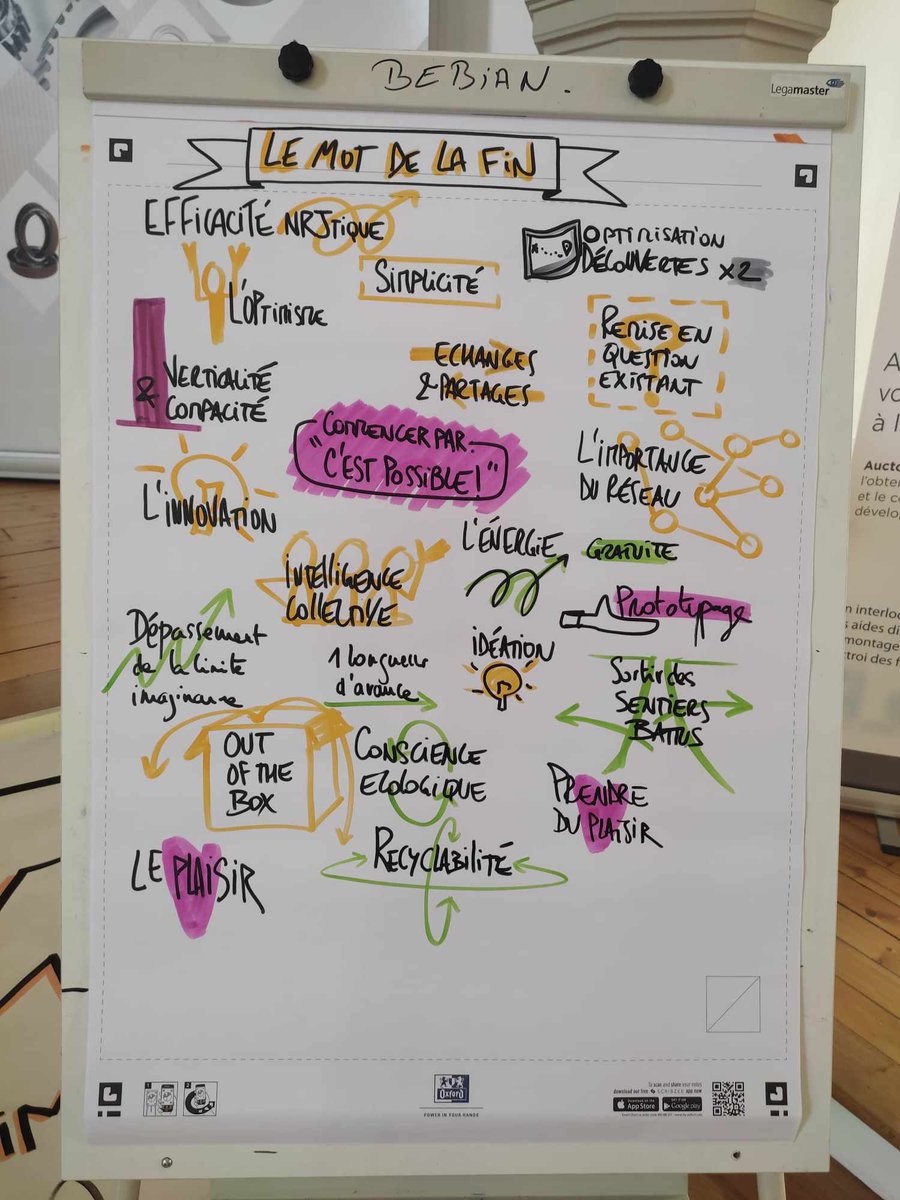 BEBIAN.
Legamaster
LE MOT DE LA FIN
EFFICACITÉ NRJTIQUE
OPTIMISATION
DÉCOUVERTES X2
SIMPLICITÉ
L'OPTIMISME
REMISE EN
QUESTION
EXISTANT
ECHANGES
& PARTAGES
VERTIALITÉ
& COMPACITÉ
COMMENCER PAR
"C'EST POSSIBLE!"
L'IMPORTANCE
DU RÉSEAU
L'INNOVATION
L'ÉNERGIE
GRATUITE
INTELLIGENCE
COLLECTIVE
Prototypage
Dépassement
de la limite
imaginaire
1 longueur
d'avance
IDÉATION
Sortir des
SENTIERS
BATTUS
OUT
OF THE
BOX
CONSCIENCE
ECOLOGIQUE
PRENDRE
DU PLAISIR
RECYCLABILITÉ
LE PLAISIR
A
vo
à l
Aucto
l'obte
et le c
dévelo
n interloc
s aides di
montage
troi des f
1
2
Oxford
POWER IN YOUR HANDS
To scan and share your notes
download our free SCRIBZEE app now
Download on the
App Store
GET IT ON
Google play
IM